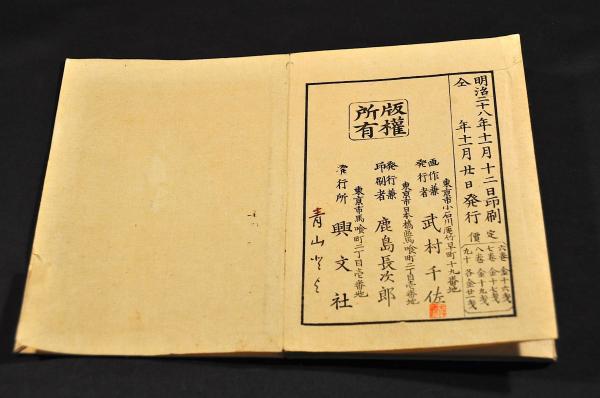 明治二十八年十一月十二日印刷
仝年十一月廿日發行
定價
六卷 金十六戔
七卷 金十七戔
八卷 金十九戔
九十 各金廿一戔
版權
所有
東京市小石川區竹早町十九番地
画作兼
發行者 武村千佐
東京市日本橋區馬喰町二丁目壱番地
發行兼
印刷者 鹿島長次郎
東京市馬喰町二丁目壱番地
發行所 興文社
青山